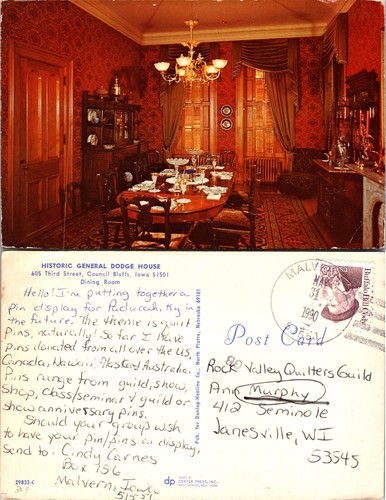 HISTORIC GENERAL DODGE HOUSE
605 Third Street, Council Bluffs, Iowa 51501
Dining Room
Hello! I'm putting together a
pin display for Paducah, Ky in
the future. The theme is quilt
pins, naturally! So far I have
pins donated from all over the US,
Canada, Hawaii, Alaska & Australia.
Pins range from guild, show,
shop, class/seminar & guild or
show anniversary pins.
Should your group wish
to have your pin/pins on display,
send to: Cindy Carnes
Box 756
Malvern, Iowa
51551
29833-C
Pub. by Dunlap-Henline Co., North Platte, Nebraska 69101
MALVERN
MAR
31
1990
Buffalo Bill Cody
USA 15
Post Card
Rock Valley Quilters Guild
Ann Murphy
412 Seminole
Janesville, WI
53545
dp
MADE BY
DEXTER PRESS, INC.
WEST NYACK, NEW YORK